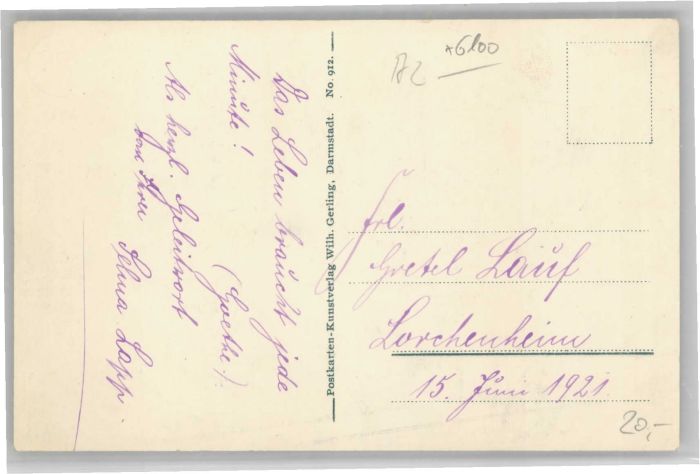 Das Leben braucht jede
Minute!
(Goethe).
Als herzl. Geleitwort
von Ihrer
Selma Lapp.
Postkarten-Kunstverlag Wilh. Gerling, Darmstadt. No. 912.
A2
*6100
Frl.
Gretel Lauf
Lorchenheim
15. Juni 1921.
20,-